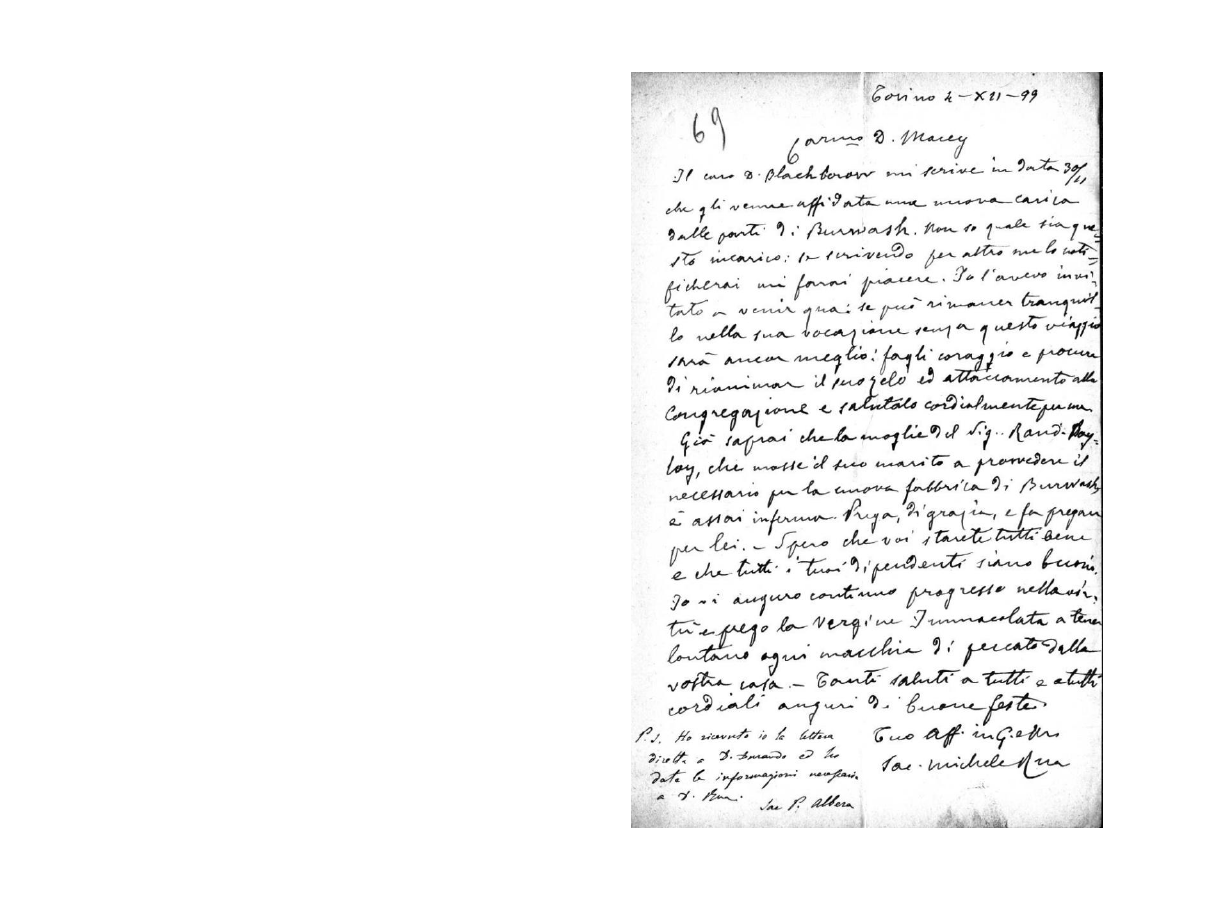 Torino 4-XII-99
69
Carmo D. Macey
Il caro D. Blackborow mi scrive in data 30/11
che gli venne affidata una nuova carica
dalle parti di Burwash. Non so quale sia que=
sto incarico: se scrivendo per altro me lo noti=
ficherai mi farai piacere. Io l'avevo invi=
tato a venir qua: se può rimaner tranquil=
lo nella sua vocazione senza questo viaggio
sarà ancor meglio: fagli coraggio e procura
di rianimar il suo zelo ed attaccamento alla
Congregazione e salutalo cordialmente per me.
Già saprai che la moglie del Sig.
che mosse il suo marito a provvedere il
necessario per la nuova fabbrica di Burwash,
è assai inferma. Prega, di grazia, e fa pregare
per lei. - Spero che voi starete tutti bene
e che tutti i tuoi dipendenti siano buoni.
Io vi auguro continuo progresso nella vir=
tù e prego la Vergine Immacolata a tener
lontano ogni macchia di peccato dalla
vostra casa. - Tanti saluti a tutti e a tutti
cordiali auguri di buone feste.
Tuo Aff. in G. e M.
Sac. Michele Rua
P.S. Ho ricevuto io la lettera
diretta a D. Durando ed ho
data le informazioni necessarie
a D. Rua.
Sac P. Albera